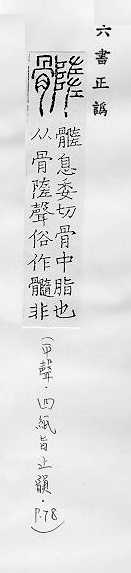 六書正譌
䯝息委切骨中脂也
从骨隓聲俗作髓非
(平聲．四紙旨止韻．P.78)